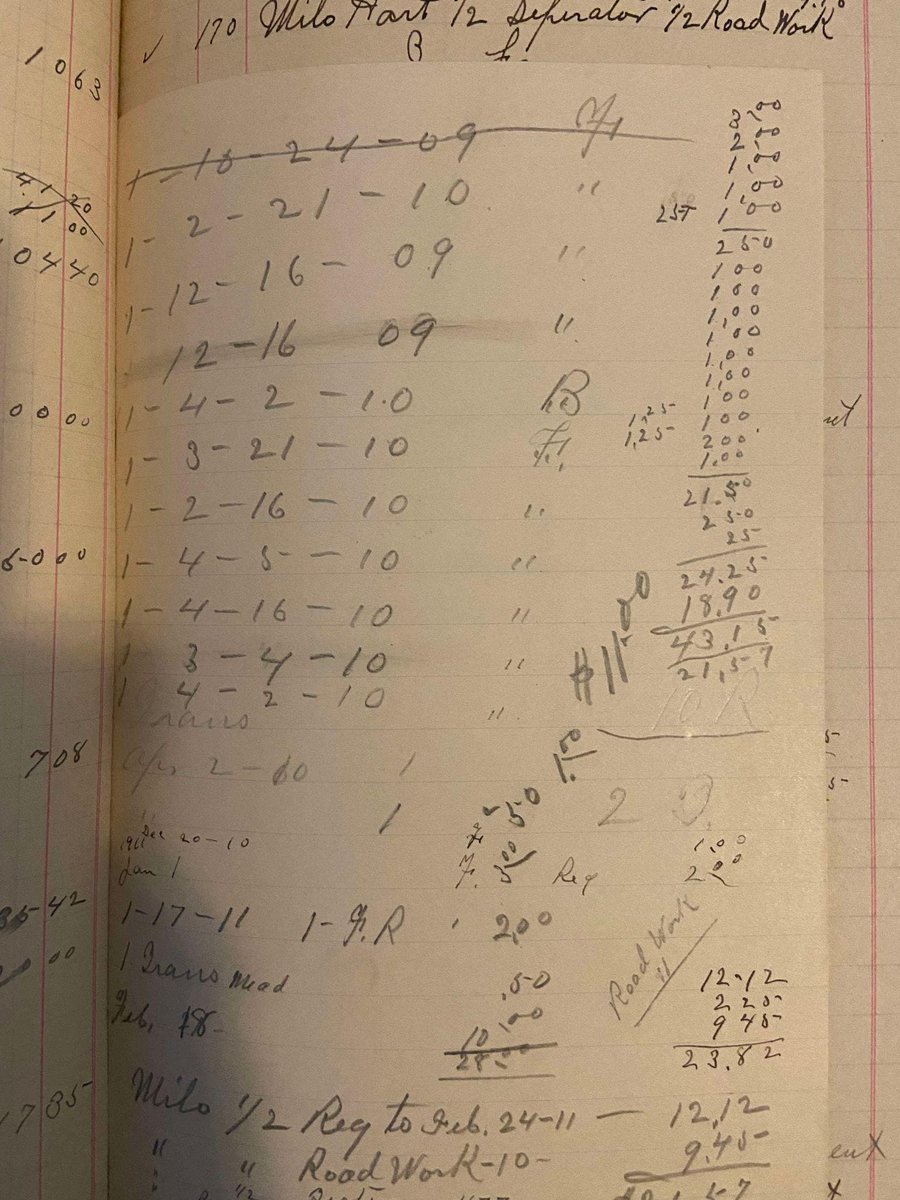 ✓ 170 Milo Hart 1/2 Seperator 1/2 Road Work
B F.
1 063
41 20
11 00
0440
0 0 00
6-0 00
708
35-42
00
1785
1 - 10 - 24 - 09 F,
1 - 2 - 21 - 10 "
1 - 12 - 16 - 09 "
12 - 16 09 "
1 - 4 - 2 - 10 B
1 - 3 - 21 - 10 F,
1 - 2 - 16 - 10 "
1 - 4 - 5 - 10 "
1 - 4 - 16 - 10 "
1 3 - 4 - 10 "
1 4 - 2 - 10 "
Trans
Apr 2 - 10 1
1
2,00
1,00
1,00
25 1,00
2 50
1 00
1 00
1,00
1,00
1,00
1,00
1 00
1,25 1 00
1,25 2 00
1.00
21.50
2 50
25
24.25
18.90
43.15
21,57
$11.00
1.00
50
Dec 20-10 F 1.00
1911
Jan 1 F. 500 Reg 2 00
1-17-11 1-F.R 2,00
1 Trans Mead .50
Feb. 18- 10,00
28.00
Road Work
"
12.12
2 25
9 45
23.82
Milo 1/2 Reg to Feb. 24-11 — 12,12
" " Road Work-10- 9.45